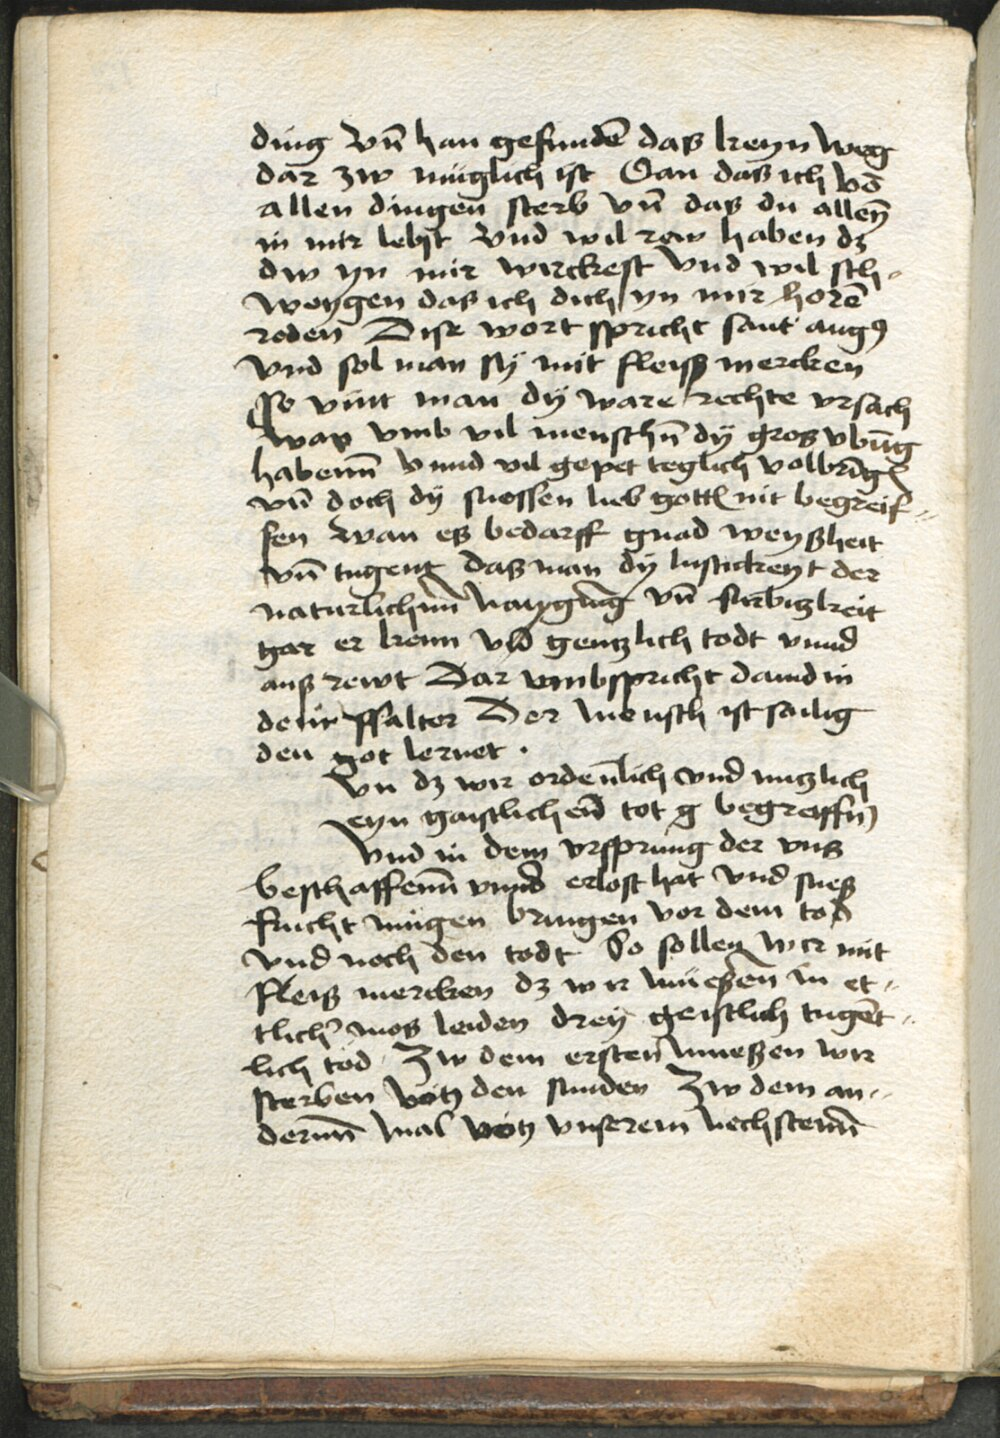 ding vn̄ han gefundē das keyn weg
dar zw müglich ist Dan das ich vō
allen dingen sterb vn̄ das du alleȳ
in mir lebst vnd wil rew haben dz
dw yn mir wirckest vnd wil sch-
weygen das ich dich yn mir horē
reden Dise wort spricht sant augꝰ
vnd sol man sÿ mit fleiss mercken
So vint man dÿ ware rechte vrsach
war vmb vil menschn̄ dÿ gros vbūg
habenn̄ vnnd vil gepet teglich volbrīgñ
vn̄ doch dÿ suessen lieb gottꝭ nit begreif-
fen wan es bedarff gnad weysheit
vn̄ tugent das man dÿ lustickeyt der
naturlichnn̄ naygūg vn̄ furbizkeit
gar er kenn vn̄d gentzlich todt vnnd
aus rewt Dar vmb spricht dauid in
dem psalter Der mensch ist sailig
den got lernet ·
Vn dz wir ordēnlich vnd nutzlich
eyn gaistlichenn̄ tot begreiffñ
Vnd in dem vrsprung der vns
beschaffenn̄ vnnd erlost hat vnd sues
frücht mügen bringen vor dem tod
vnd noch den todt So sollen wir mit
fleis mercken dz wir müesen̄ in et-
tlichꝰ mos leiden dreÿ geistlich tugēt-
lich töd Zw dem ersten muessen wir
sterben von den sunden Zw dem an-
dernn̄ mal von vnserem nechstenn̄